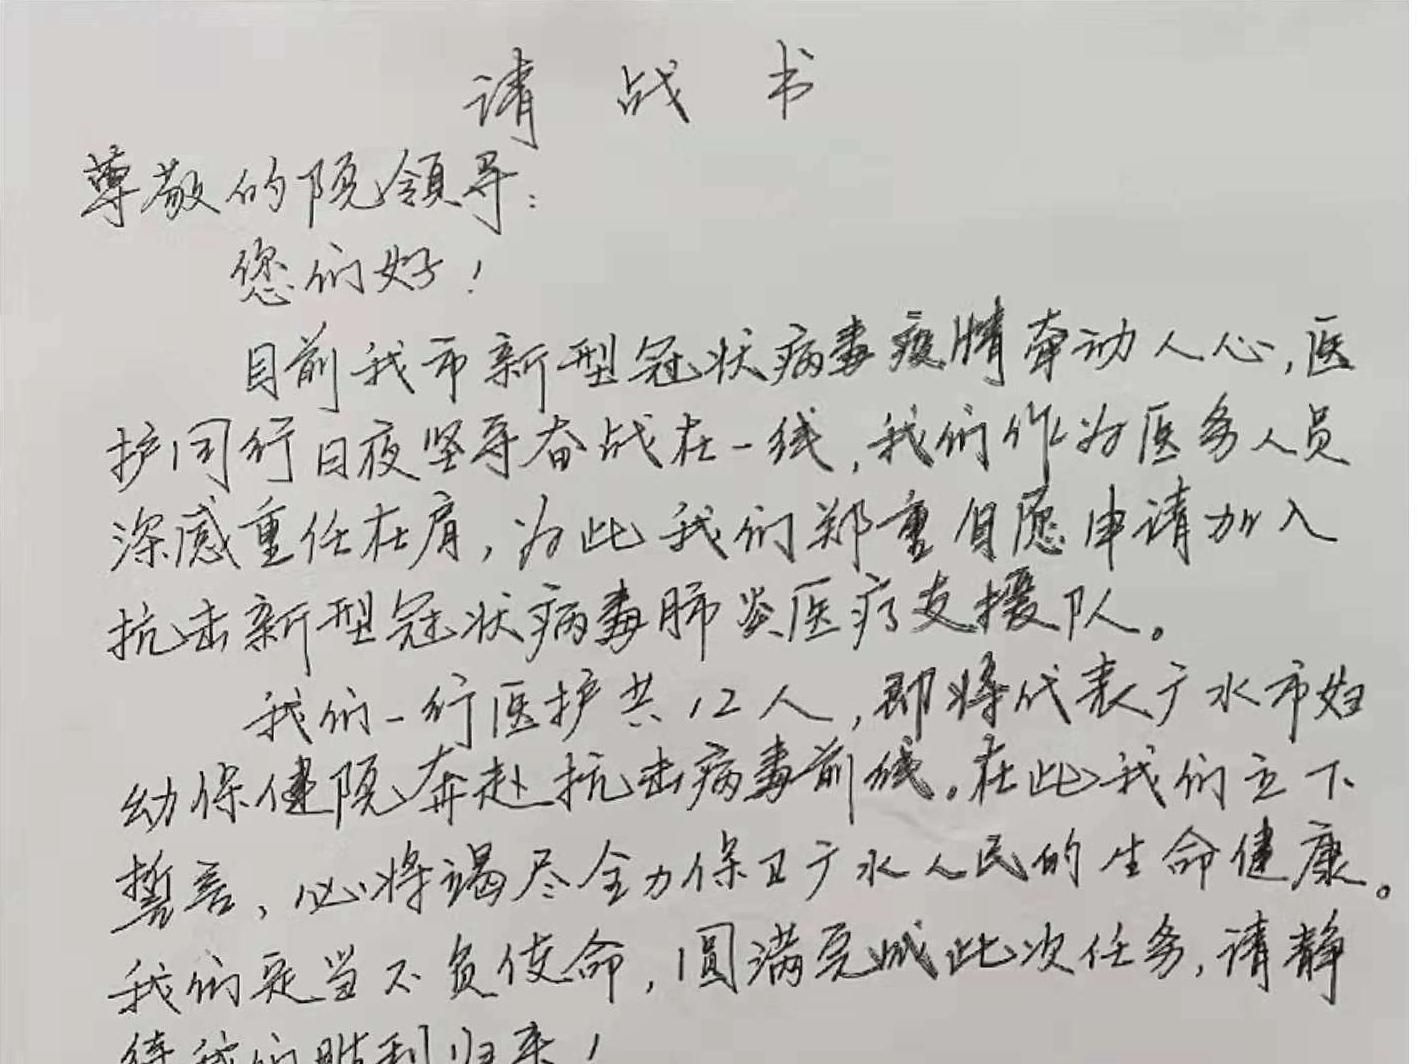 请战书
尊敬的院领导:
您们好!
目前我市新型冠状病毒疫情牵动人心,医
护同行日夜坚守奋战在一线,我们作为医务人员
深感重任在肩,为此我们郑重自愿申请加入
抗击新型冠状病毒肺炎医疗支援队。
我们一行医护共12人,即将代表广水市妇
幼保健院奔赴抗击病毒前线。在此我们立下
誓言,必将竭尽全力保卫广水人民的生命健康。
我们定当不负使命,圆满完成此次任务,请静
待我们胜利归来!